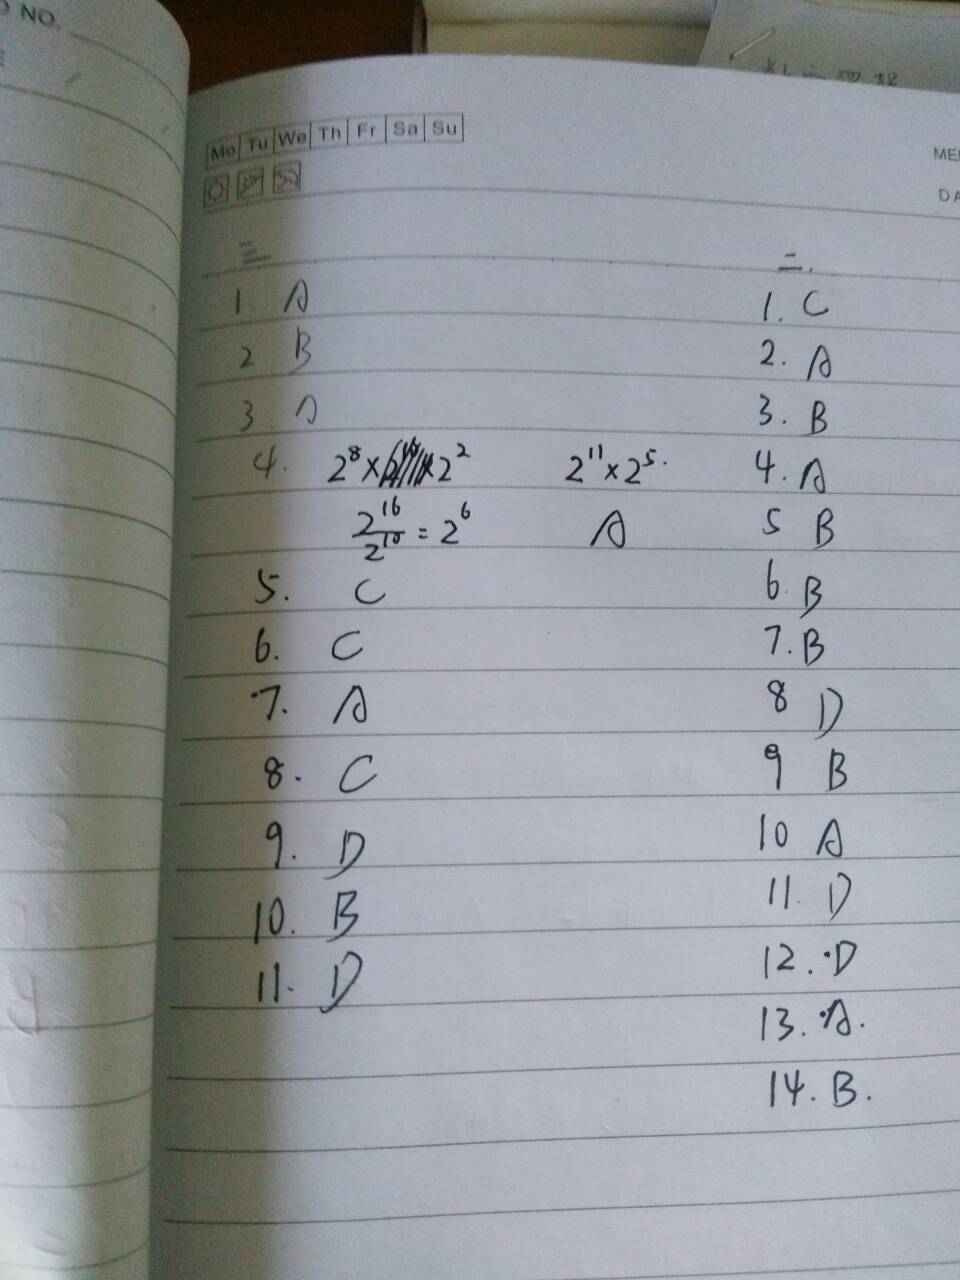 NO.
Mo Tu We Th Fr Sa Su
三
1 A
2 B
3 A
4. 2⁸×2² 2¹¹×2⁵.
2¹⁶/2¹⁰=2⁶ A
5. C
6. C
7. A
8. C
9. D
10. B
11. D
二.
1. C
2. A
3. B
4. A
5 B
6. B
7. B
8 D
9 B
10 A
11. D
12. D
13. A.
14. B.